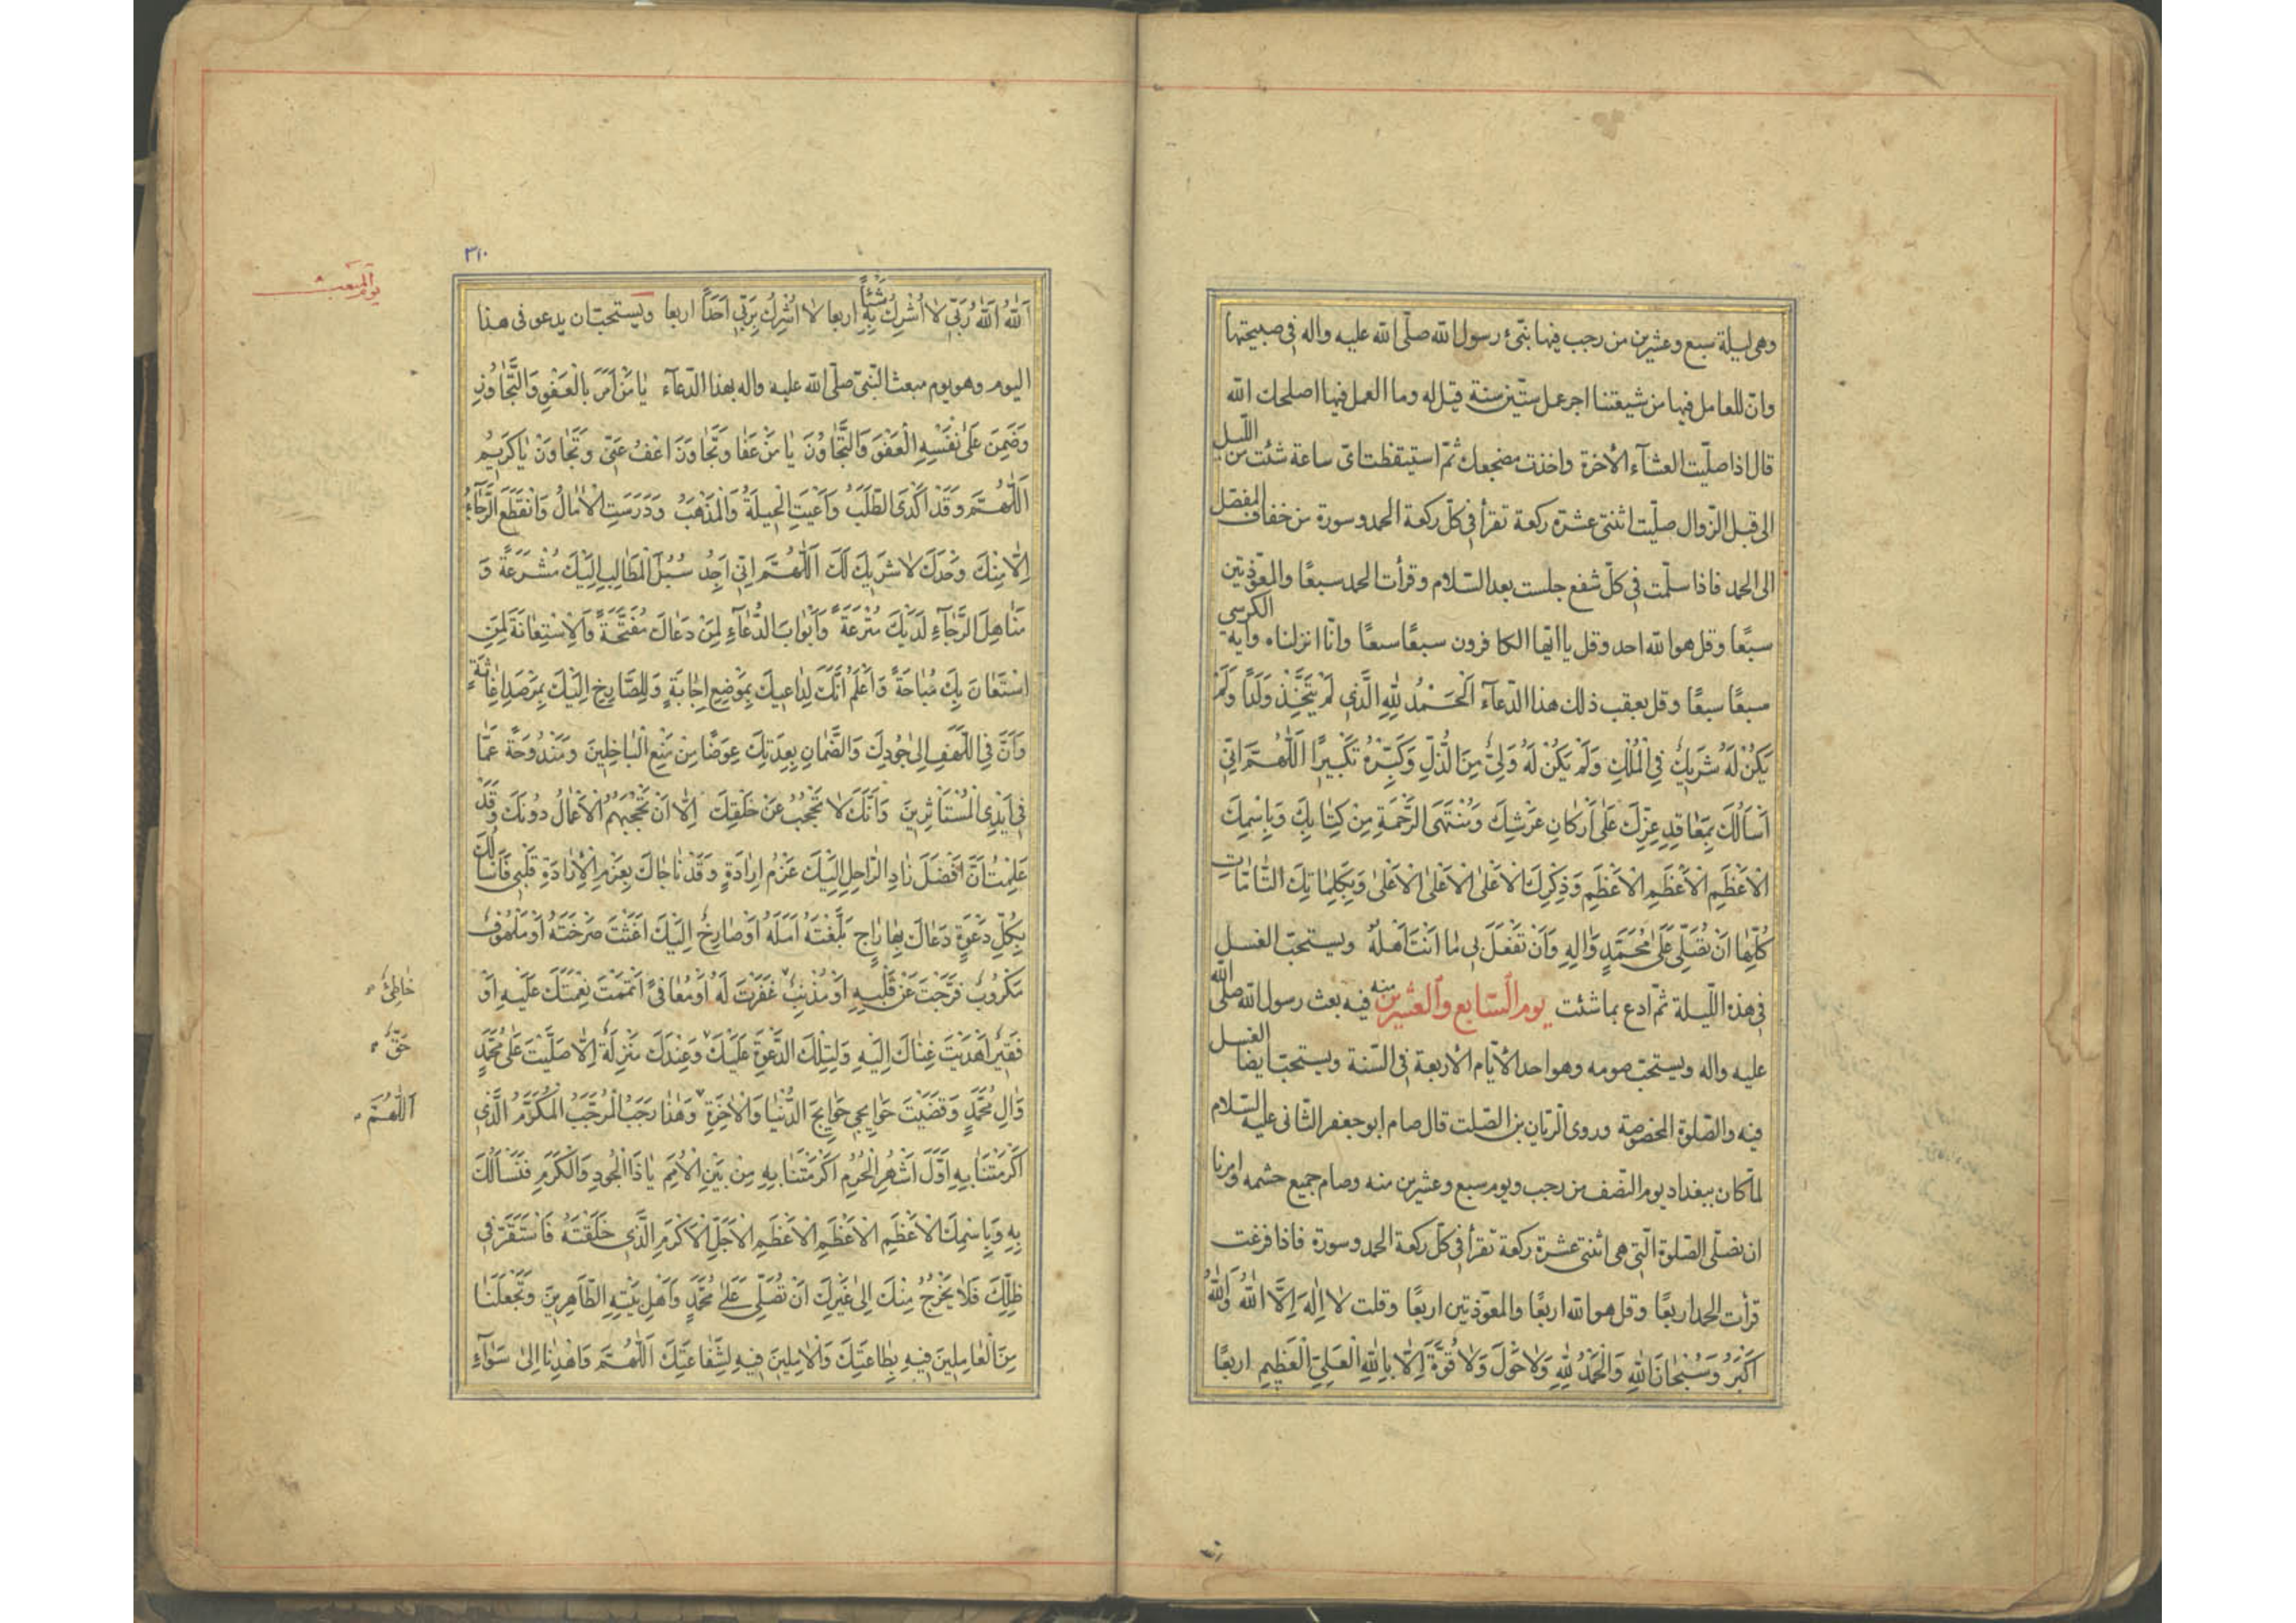 وهى ليلة سبع وعشرين من رجب فيها نبّئ رسول الله صلّى الله عليه واله فى صبيحتها
وانّ للعامل فيها من شيعتنا اجر عمل ستّين سنة قيل له وما العمل فيها اصلحك الله
قال اذا صلّيت العشآء الأخرة واخذت مضجعك ثمّ استيقظت اىّ ساعة شئت من الليل
الى قبل الزّوال صلّيت اثنتى عشرة ركعة تقرأ فى كلّ ركعة الحمد وسورة من خفاف المفصّل
الى الحمد فاذا سلّمت فى كلّ شفع جلست بعد السّلام وقرأت الحمد سبعًا والمعوّذتين
سبعًا وقل هو الله احد وقل يا ايّها الكافرون سبعًا سبعًا وانّا انزلناه واية الكرسى
سبعًا سبعًا وقل بعقب ذلك هذا الدّعآء اَلْحَمْدُ لِلّهِ الَّذى لَمْ يَتَّخِذْ وَلَدًا وَلَمْ
يَكُنْ لَهُ شَريكٌ فِى الْمُلْكِ وَلَمْ يَكُنْ لَهُ وَلِىٌّ مِنَ الذُّلِّ وَكَبِّرْهُ تَكْبيرًا اَللّهُمَّ اِنّى
اَسْاَلُكَ بِمَعاقِدِ عِزِّكَ عَلى اَرْكانِ عَرْشِكَ وَمُنْتَهَى الرَّحْمَةِ مِنْ كِتابِكَ وَبِاسْمِكَ
الْاَعْظَمِ الْاَعْظَمِ الْاَعْظَمِ وَذِكْرِكَ الْاَعْلَى الْاَعْلَى الْاَعْلى وَبِكَلِماتِكَ التّامّاتِ
كُلِّها اَنْ تُصَلِّىَ عَلى مُحَمَّدٍ وَالِهِ وَاَنْ تَفْعَلَ بى ما اَنْتَ اَهْلُهُ ويستحبّ الغسل
فى هذه اللّيلة ثمّ ادع بما شئت يوم السّابع والعشرين منه فيه بعث رسول الله صلى الله
عليه واله ويستحبّ صومه وهو احد الأيّام الأربعة فى السّنة ويستحبّ ايضا الغسل
فيه والصّلوة المخصوصة وروى الرّيّان بن الصّلت قال صام ابو جعفر الثّانى عليه السّلام
لمّا كان ببغداد يوم النّصف من رجب ويوم سبع وعشرين منه وصام جميع حشمه وامرنا
ان نصلّى الصّلوة الّتى هى اثنتى عشرة ركعة تقرأ فى كلّ ركعة الحمد وسورة فاذا فرغت
قرأت الحمد اربعًا وقل هو الله اربعًا والمعوّذتين اربعًا وقلت لا اِلهَ اِلَّا اللّهُ وَاللّهُ
اَكْبَرُ وَسُبْحانَ اللّهِ وَالْحَمْدُ لِلّهِ وَلا حَوْلَ وَلا قُوَّةَ اِلّا بِاللّهِ الْعَلِىِّ الْعَظيمِ اربعًا
٣١٠
يوم المبعث
اَللّهُ اَللّهُ رَبّى لا اُشْرِكُ بِهِ شَيْئاً اربعا لا اُشْرِكُ بِرَبّى اَحَدًا اربعا ويستحبّ ان يدعو فى هذا
اليوم وهو يوم مبعث النّبىّ صلّى الله عليه واله بهذا الدّعآء يا مَنْ اَمَرَ بِالْعَفْوِ وَالتَّجاوُزِ
وَضَمِنَ عَلى نَفْسِهِ الْعَفْوَ وَالتَّجاوُزَ يا مَنْ عَفا وَتَجاوَزَ اعْفُ عَنّى وَتَجاوَزْ يا كَريمُ
اَللّهُمَّ وَقَدْ اَكْدَى الطَّلَبُ وَاَعْيَتِ الْحيلَةُ وَالْمَذْهَبُ وَدَرَسَتِ الْامالُ وَانْقَطَعَ الرَّجآءُ
اِلّا مِنْكَ وَحْدَكَ لا شَريكَ لَكَ اَللّهُمَّ اِنّى اَجِدُ سُبُلَ الْمَطالِبِ اِلَيْكَ مُشْرَعَةً وَ
مَناهِلَ الرَّجآءِ لَدَيْكَ مُتْرَعَةً وَاَبْوابَ الدُّعآءِ لِمَنْ دَعاكَ مُفَتَّحَةً وَالْاِسْتِعانَةَ لِمَنِ
اسْتَعانَ بِكَ مُباحَةً وَاَعْلَمُ اَنَّكَ لِداعيكَ بِمَوْضِعِ اِجابَةٍ وَلِلصّارِخِ اِلَيْكَ بِمَرْصَدِ اِغاثَةٍ
وَاَنَّ فِى اللَّهْفِ اِلى جُودِكَ وَالضَّمانِ بِعِدَتِكَ عِوَضًا مِنْ مَنْعِ الْباخِلينَ وَمَنْدُوحَةً عَمّا
فى اَيْدِى الْمُسْتَأْثِرينَ وَاَنَّكَ لا تَحْجُبُ عَنْ خَلْقِكَ اِلّا اَنْ تَحْجُبَهُمُ الْاَعْمالُ دُونَكَ وَقَدْ
عَلِمْتُ اَنَّ اَفْضَلَ زادِ الرّاحِلِ اِلَيْكَ عَزْمُ اِرادَةٍ وَقَدْ ناجاكَ بِعَزْمِ الْاِرادَةِ قَلْبى فَاَسْاَلُكَ
بِكُلِّ دَعْوَةٍ دَعاكَ بِها راجٍ بَلَّغْتَهُ اَمَلَهُ اَوْ صارِخٌ اِلَيْكَ اَغَثْتَ صَرْخَتَهُ اَوْ مَلْهُوفٌ
مَكْرُوبٌ فَرَّجْتَ عَنْ قَلْبِهِ اَوْ مُذْنِبٌ غَفَرْتَ لَهُ اَوْ مُعافىً اَتْمَمْتَ نِعْمَتَكَ عَلَيْهِ اَوْ
خاطِئٌ
فَقيرٌ اَهْدَيْتَ غِناكَ اِلَيْهِ وَلِتِلْكَ الدَّعْوَةِ عَلَيْكَ وَعِنْدَكَ مَنْزِلَةٌ اِلّا صَلَّيْتَ عَلى مُحَمَّدٍ
حَقٌّ
وَالِ مُحَمَّدٍ وَقَضَيْتَ حَوآئِجى حَوآئِجَ الدُّنْيا وَالْاخِرَةِ وَهذا رَجَبُ الْمُرَجَّبُ الْمُكَرَّمُ الَّذى
اَللّهُمَّ
اَكْرَمْتَنا بِهِ اَوَّلُ اَشْهُرِ الْحُرُمِ اَكْرَمْتَنا بِهِ مِنْ بَيْنِ الْاُمَمِ يا ذَا الْجُودِ وَالْكَرَمِ فَنَسْاَلُكَ
بِهِ وَبِاسْمِكَ الْاَعْظَمِ الْاَعْظَمِ الْاَعْظَمِ الْاَجَلِّ الْاَكْرَمِ الَّذى خَلَقْتَهُ فَاسْتَقَرَّ فى
ظِلِّكَ فَلا يَخْرُجُ مِنْكَ اِلى غَيْرِكَ اَنْ تُصَلِّىَ عَلى مُحَمَّدٍ وَاَهْلِ بَيْتِهِ الطّاهِرينَ وَتَجْعَلَنا
مِنَ الْعامِلينَ فيهِ بِطاعَتِكَ وَالْامِلينَ فيهِ لِشَفاعَتِكَ اَللّهُمَّ وَاهْدِنا اِلى سَوآءِ